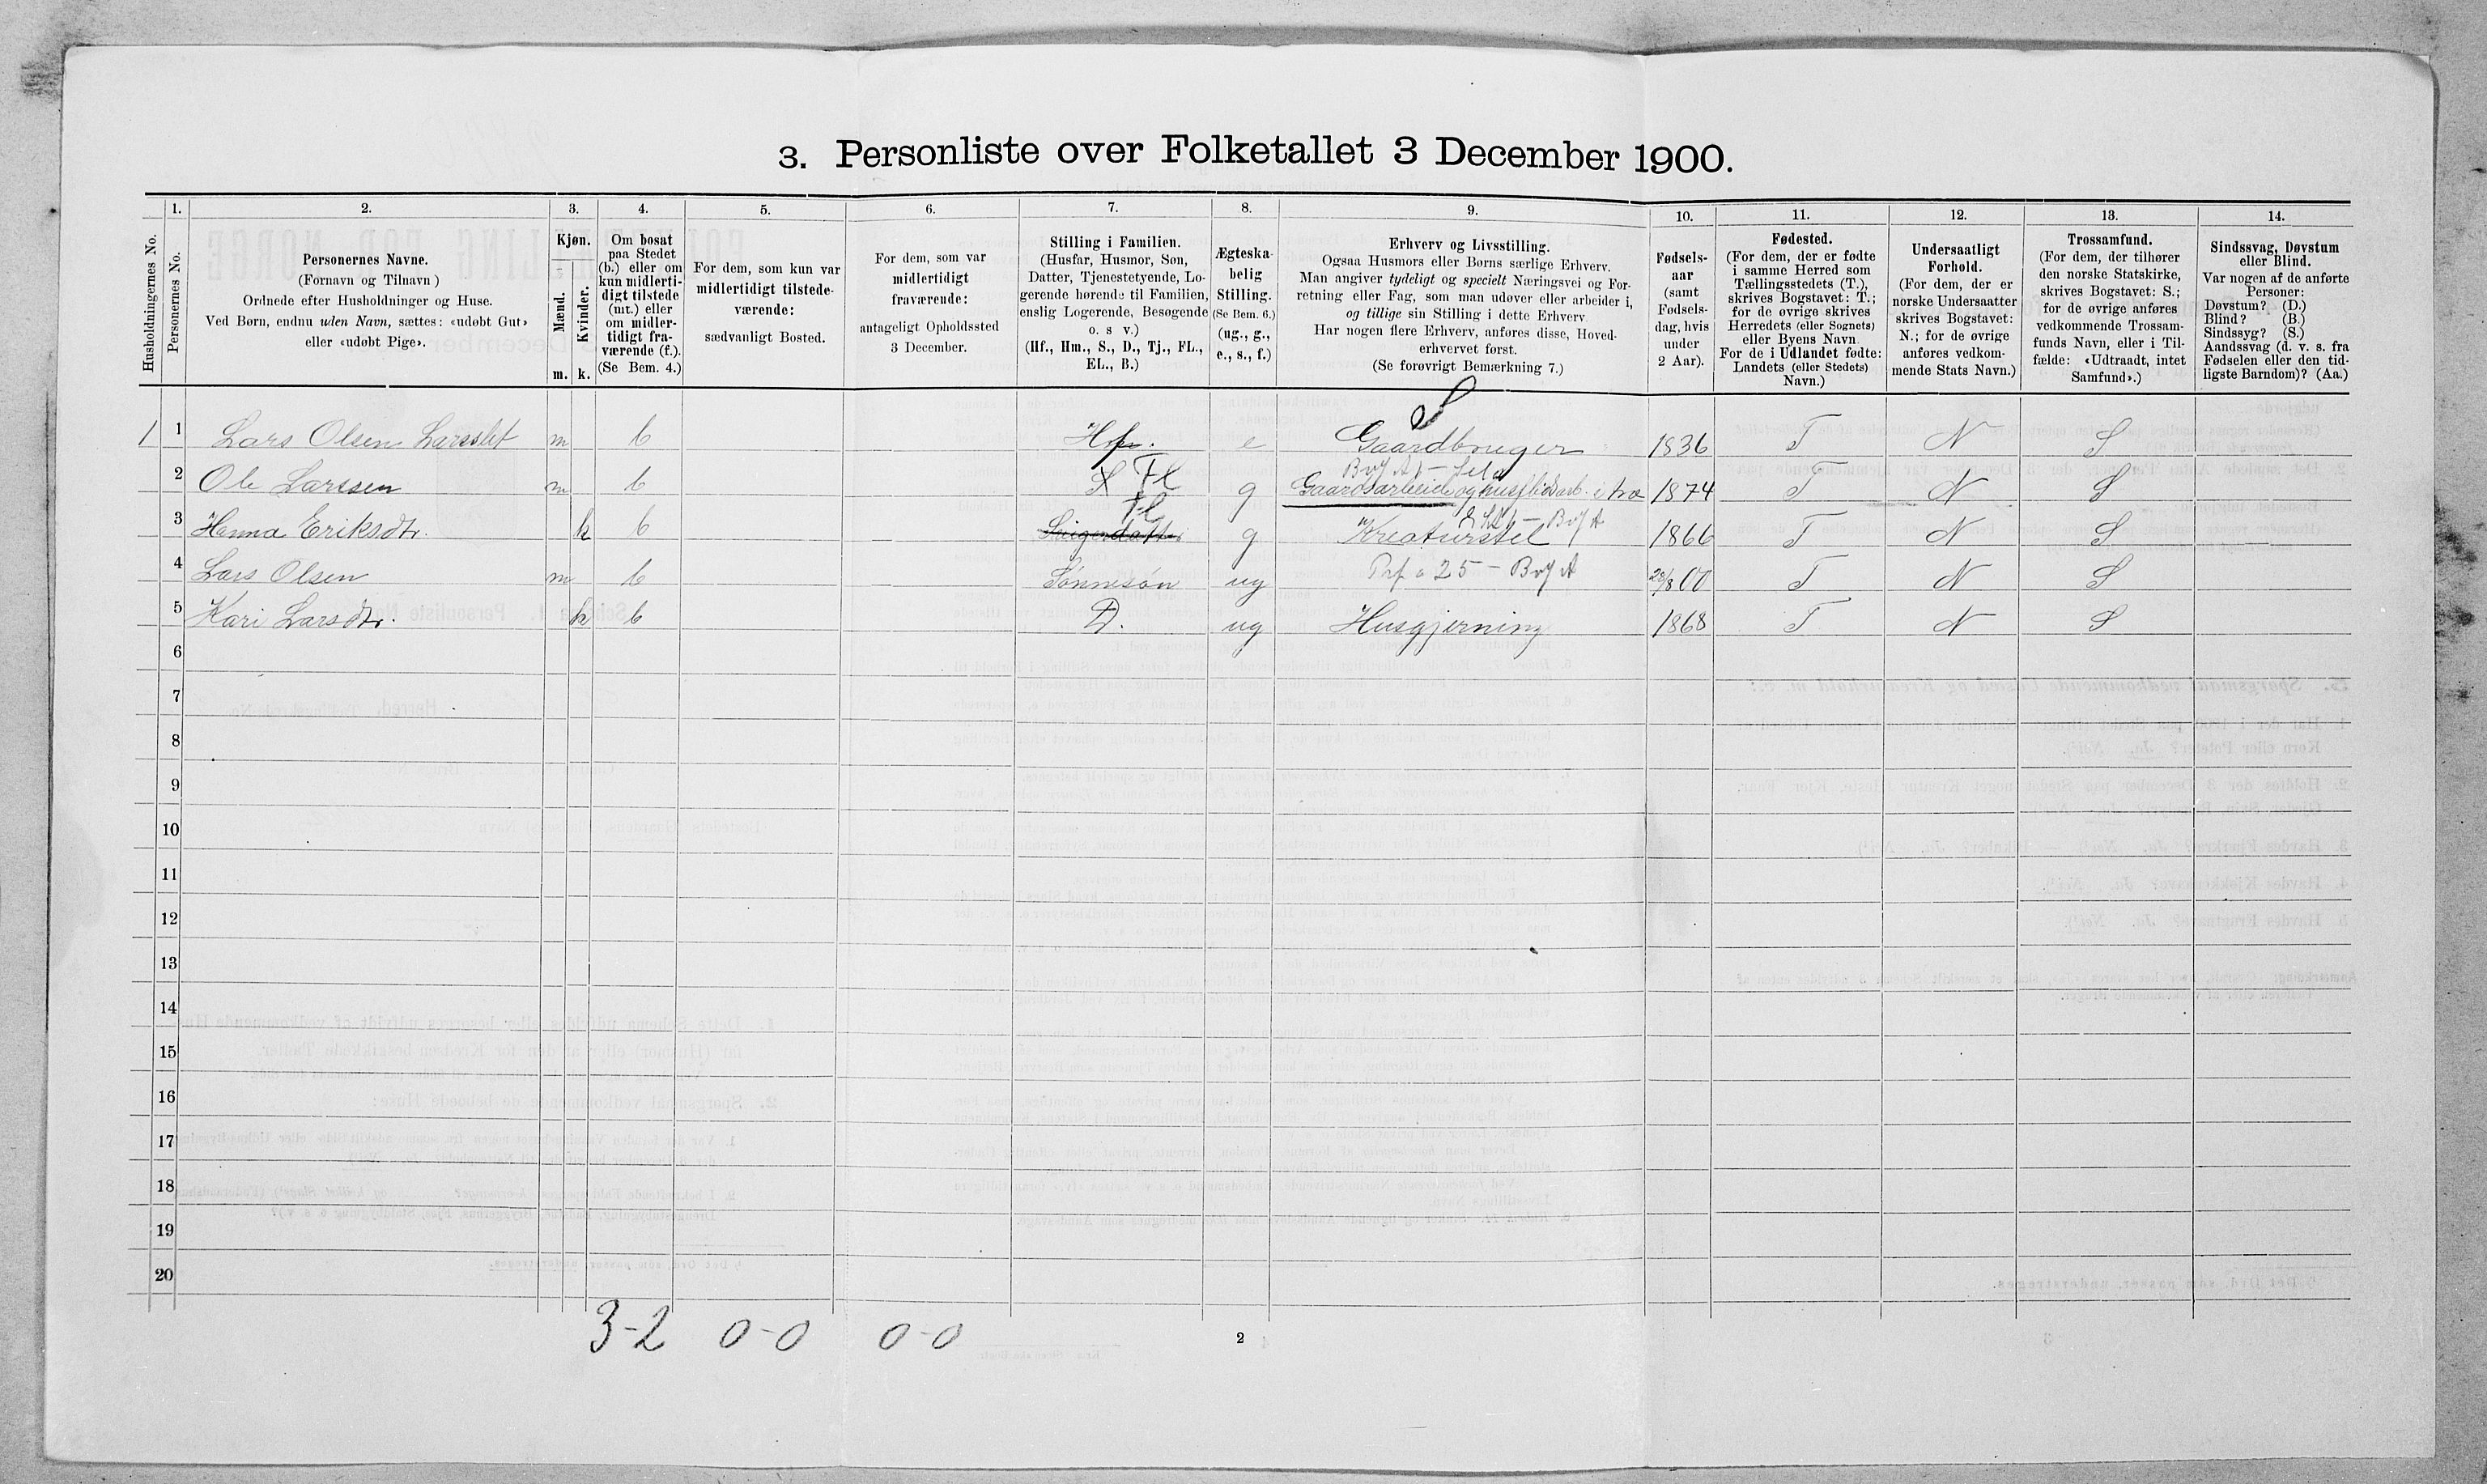 3. Personliste over Folketallet 3 December 1900.
1. 2. 3. 4. 5. 6. 7. 8. 9. 10. 11. 12. 13. 14.
Husholdningernes No.
Personernes No.
Personernes Navne.
(Fornavn og Tilnavn)
Ordnede efter Husholdninger og Huse.
Ved Børn, endnu uden Navn, sættes: «udøbt Gut»
eller «udøbt Pige».
Kjøn.
Mænd.
Kvinder.
m. k.
Om bosat
paa Stedet
(b.) eller om
kun midlerti-
digt tilstede
(mt.) eller
om midler-
tidigt fra-
værende (f.).
(Se Bem. 4.)
For dem, som kun var
midlertidigt tilstede-
værende:
sædvanligt Bosted.
For dem, som var
midlertidigt
fraværende:
antageligt Opholdssted
3 December.
Stilling i Familien.
(Husfar, Husmor, Søn,
Datter, Tjenestetyende, Lo-
gerende hørende til Familien,
enslig Logerende, Besøgende
o. s v.)
(Hf., Hm., S., D., Tj., FL.,
EL., B.)
Ægteska-
belig
Stilling.
(Se Bem. 6.)
(ug., g.,
e., s., f.)
Erhverv og Livsstilling.
Ogsaa Husmors eller Børns særlige Erhverv.
Man angiver tydeligt og specielt Næringsvei og For-
retning eller Fag, som man udøver eller arbeider i,
og tillige sin Stilling i dette Erhverv
Har nogen flere Erhverv, anføres disse, Hoved-
erhvervet først.
(Se forøvrigt Bemærkning 7.)
Fødsels-
aar
(samt
Fødsels-
dag, hvis
under
2 Aar).
Fødested.
(For dem, der er fødte
i samme Herred som
Tællingsstedets (T.),
skrives Bogstavet: T.;
for de øvrige skrives
Herredets (eller Sognets)
eller Byens Navn.
For de i Udlandet fødte:
Landets (eller Stedets)
Navn.)
Undersaatligt
Forhold.
(For dem, der er
norske Undersaatter
skrives Bogstavet:
N.; for de øvrige
anføres vedkom-
mende Stats Navn.)
Trossamfund.
(For dem, der tilhører
den norske Statskirke,
skrives Bogstavet: S.;
for de øvrige anføres
vedkommende Trossam-
funds Navn, eller i Til-
fælde: «Udtraadt, intet
Samfund».)
Sindssvag, Døvstum
eller Blind.
Var nogen af de anførte
Personer:
Døvstum? (D.)
Blind? (B.)
Sindssyg? (S.)
Aandssvag (d. v. s. fra
Fødselen eller den tid-
ligste Barndom)? (Aa.)
S
1 1 Lars Olsen Larsslet m b Hf. e Gaardbruger 1836 T N S
2 Ole Larssen m b S Fl g Gaardsarbeide og husflidsarb. i træ 1874 T N S
3 Hanna Eriksdtr. k b Svigerdatter Fl g Kreaturstel 1866 T N S
4 Lars Olsen m b Sønnesøn ug 25 28/8 00 T N S
5 Kari Larsdtr. k b D. ug Husgjerning 1868 T N S
6
7
8
9
10
11
12
13
14
15
16
17
18
19
20
3-2 0-0 0-0
2